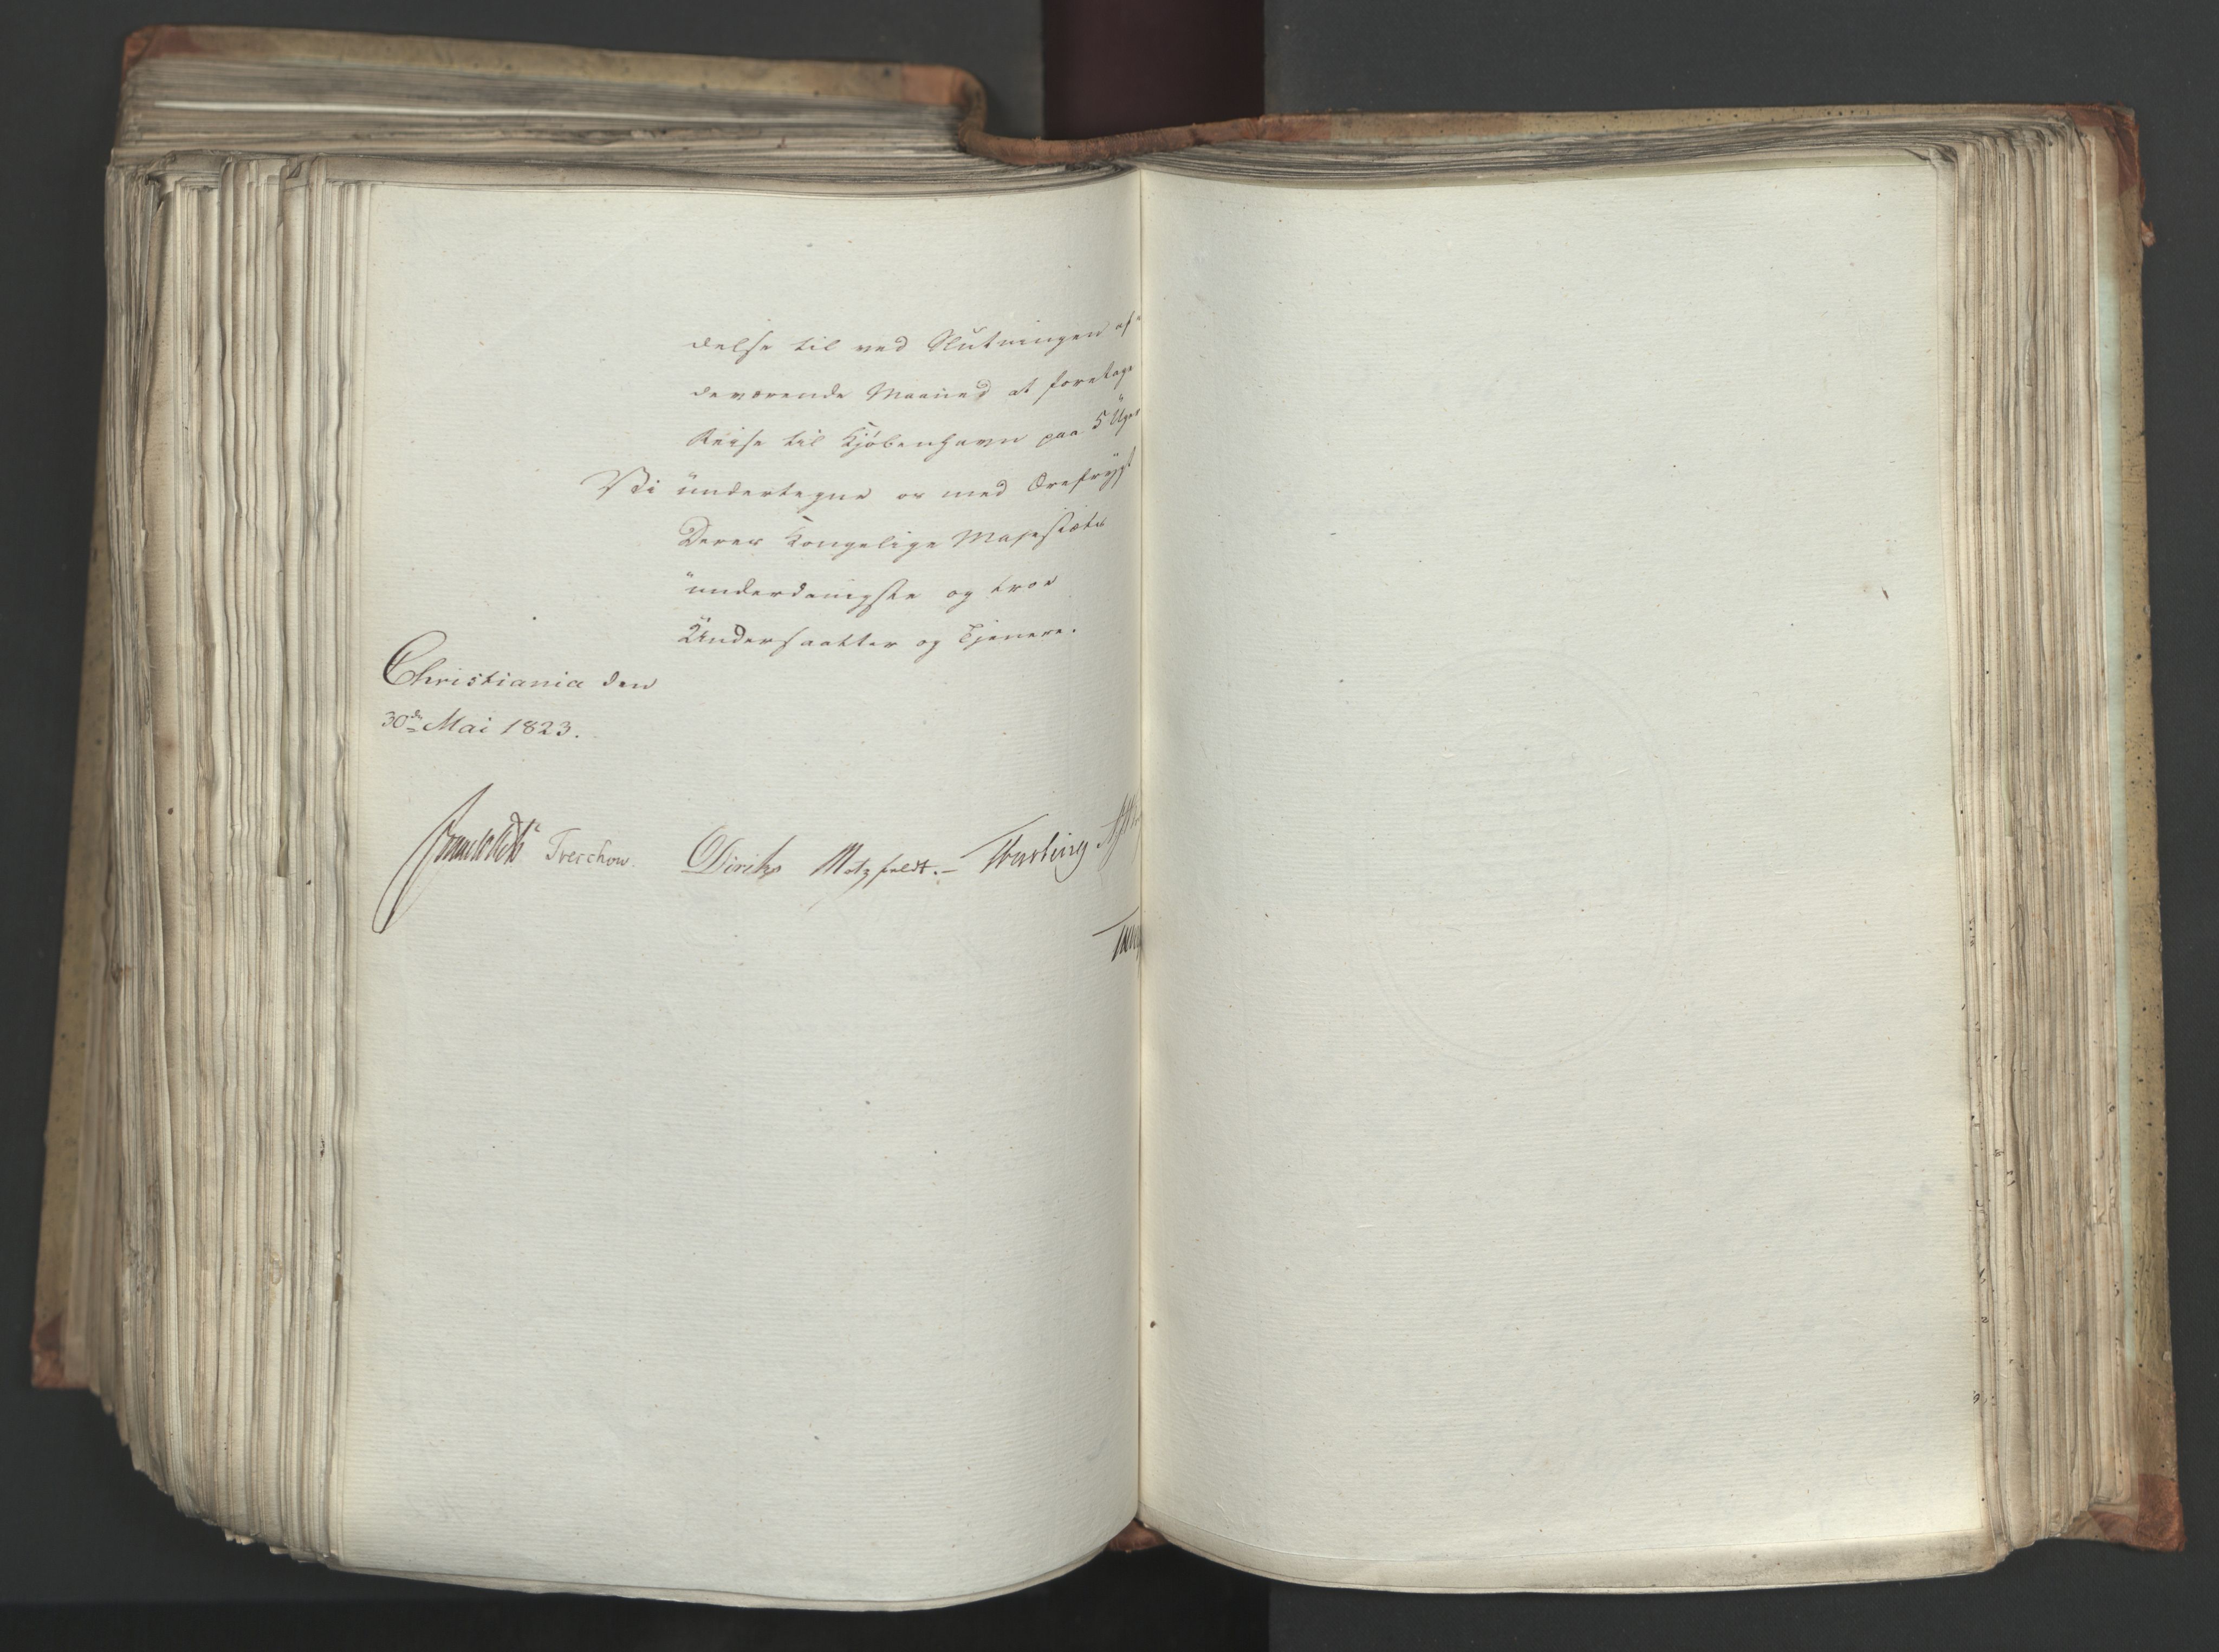 delse til ved Slutningen af
deværende Maaned at foretage
Reise til Kjøbenhavn paa 5 Uger
Vi undertegne os med Ærefrygt
Deres Kongelige Majestæts
underdanigste og troe
Undersaatter og Tjenere.
Christiania den
30de Mai 1823.
Treschow. Diriks Motzfeldt.-